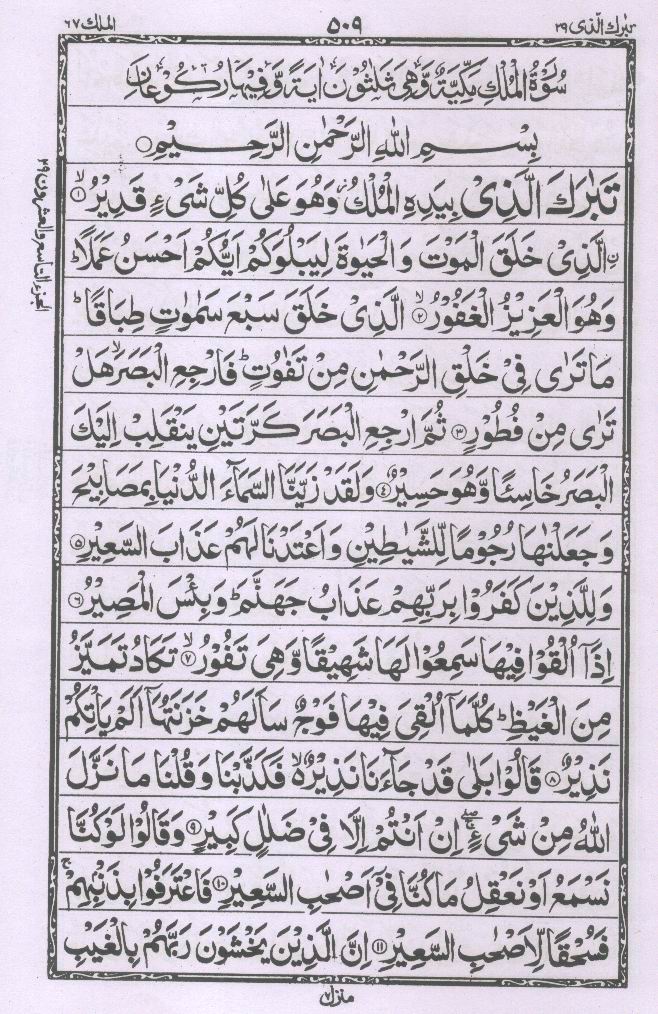 تبٰرك الّذی ٢٩
٥٠٩
الملك ٦٧
سُوْرَةُ الْمُلْكِ مَكِّيَّةٌ وَّهِىَ ثَلٰثُوْنَ اٰيَةً وَّفِيْهَا رُكُوْعَانِ
بِسْمِ اللّٰهِ الرَّحْمٰنِ الرَّحِيْمِ
تَبٰرَكَ الَّذِىْ بِيَدِهِ الْمُلْكُ وَهُوَ عَلٰى كُلِّ شَىْءٍ قَدِيْرُ ۙ﴿١﴾
ۨالَّذِىْ خَلَقَ الْمَوْتَ وَالْحَيٰوةَ لِيَبْلُوَكُمْ اَيُّكُمْ اَحْسَنُ عَمَلًا ؕ
وَهُوَ الْعَزِيْزُ الْغَفُوْرُ ۙ﴿٢﴾ الَّذِىْ خَلَقَ سَبْعَ سَمٰوٰتٍ طِبَاقًا ؕ
مَا تَرٰى فِىْ خَلْقِ الرَّحْمٰنِ مِنْ تَفٰوُتٍ ؕ فَارْجِعِ الْبَصَرَ ۙ هَلْ
تَرٰى مِنْ فُطُوْرٍ ﴿٣﴾ ثُمَّ ارْجِعِ الْبَصَرَ كَرَّتَيْنِ يَنْقَلِبْ اِلَيْكَ
الْبَصَرُ خَاسِئًا وَّهُوَ حَسِيْرٌ ﴿٤﴾ وَلَقَدْ زَيَّنَّا السَّمَآءَ الدُّنْيَا بِمَصَابِيْحَ
وَجَعَلْنٰهَا رُجُوْمًا لِّلشَّيٰطِيْنِ وَاَعْتَدْنَا لَهُمْ عَذَابَ السَّعِيْرِ ﴿٥﴾
وَلِلَّذِيْنَ كَفَرُوْا بِرَبِّهِمْ عَذَابُ جَهَنَّمَ ؕ وَبِئْسَ الْمَصِيْرُ ﴿٦﴾
اِذَآ اُلْقُوْا فِيْهَا سَمِعُوْا لَهَا شَهِيْقًا وَّهِىَ تَفُوْرُ ۙ﴿٧﴾ تَكَادُ تَمَيَّزُ
مِنَ الْغَيْظِ ؕ كُلَّمَآ اُلْقِىَ فِيْهَا فَوْجٌ سَاَلَهُمْ خَزَنَتُهَآ اَلَمْ يَاْتِكُمْ
نَذِيْرٌ ﴿٨﴾ قَالُوْا بَلٰى قَدْ جَآءَنَا نَذِيْرٌ ۙ فَكَذَّبْنَا وَقُلْنَا مَا نَزَّلَ
اللّٰهُ مِنْ شَىْءٍ ۖۚ اِنْ اَنْتُمْ اِلَّا فِىْ ضَلٰلٍ كَبِيْرٍ ﴿٩﴾ وَقَالُوْا لَوْ كُنَّا
نَسْمَعُ اَوْ نَعْقِلُ مَا كُنَّا فِىْٓ اَصْحٰبِ السَّعِيْرِ ﴿١٠﴾ فَاعْتَرَفُوْا بِذَنْۢبِهِمْ ۚ
فَسُحْقًا لِّاَصْحٰبِ السَّعِيْرِ ﴿١١﴾ اِنَّ الَّذِيْنَ يَخْشَوْنَ رَبَّهُمْ بِالْغَيْبِ
منزل ٧
الجزء التاسع والعشرون ٢٩